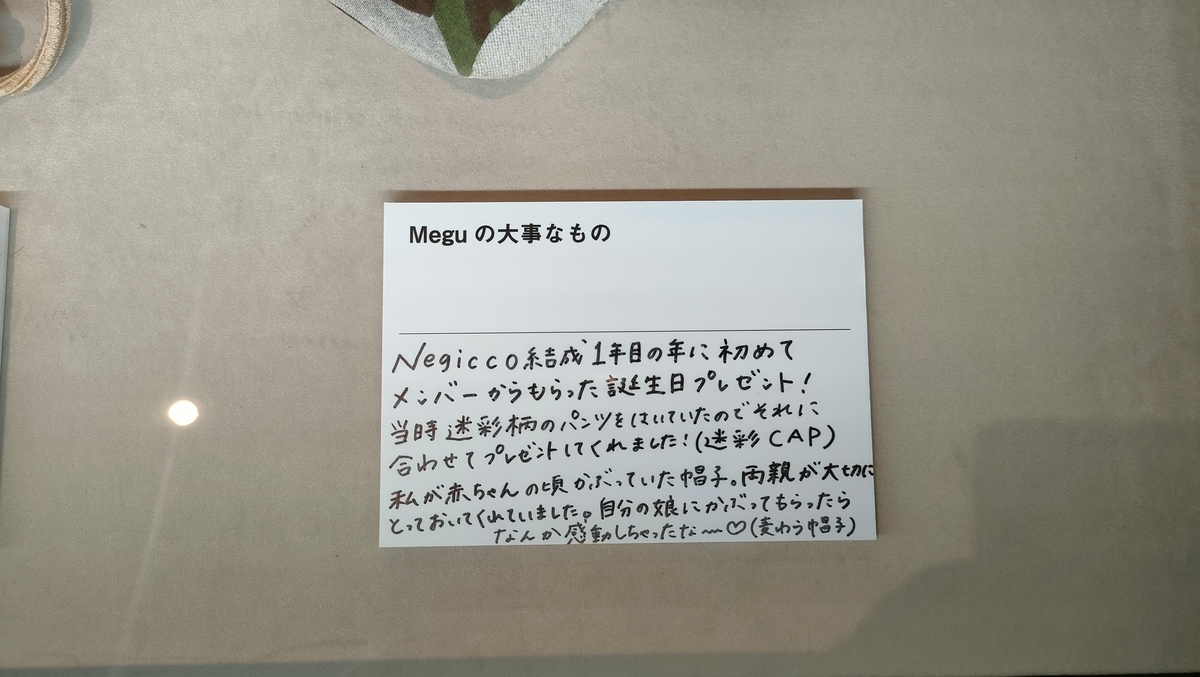 Megu の大事なもの
Negicco結成1年目の年に初めて
メンバーからもらった誕生日プレゼント！
当時迷彩柄のパンツをはいていたのでそれに
合わせてプレゼントしてくれました！(迷彩CAP)
私が赤ちゃんの頃かぶっていた帽子。両親が大切に
とっておいてくれていました。自分の娘にかぶってもらったら
なんか感動しちゃったな〜♡(麦わら帽子)